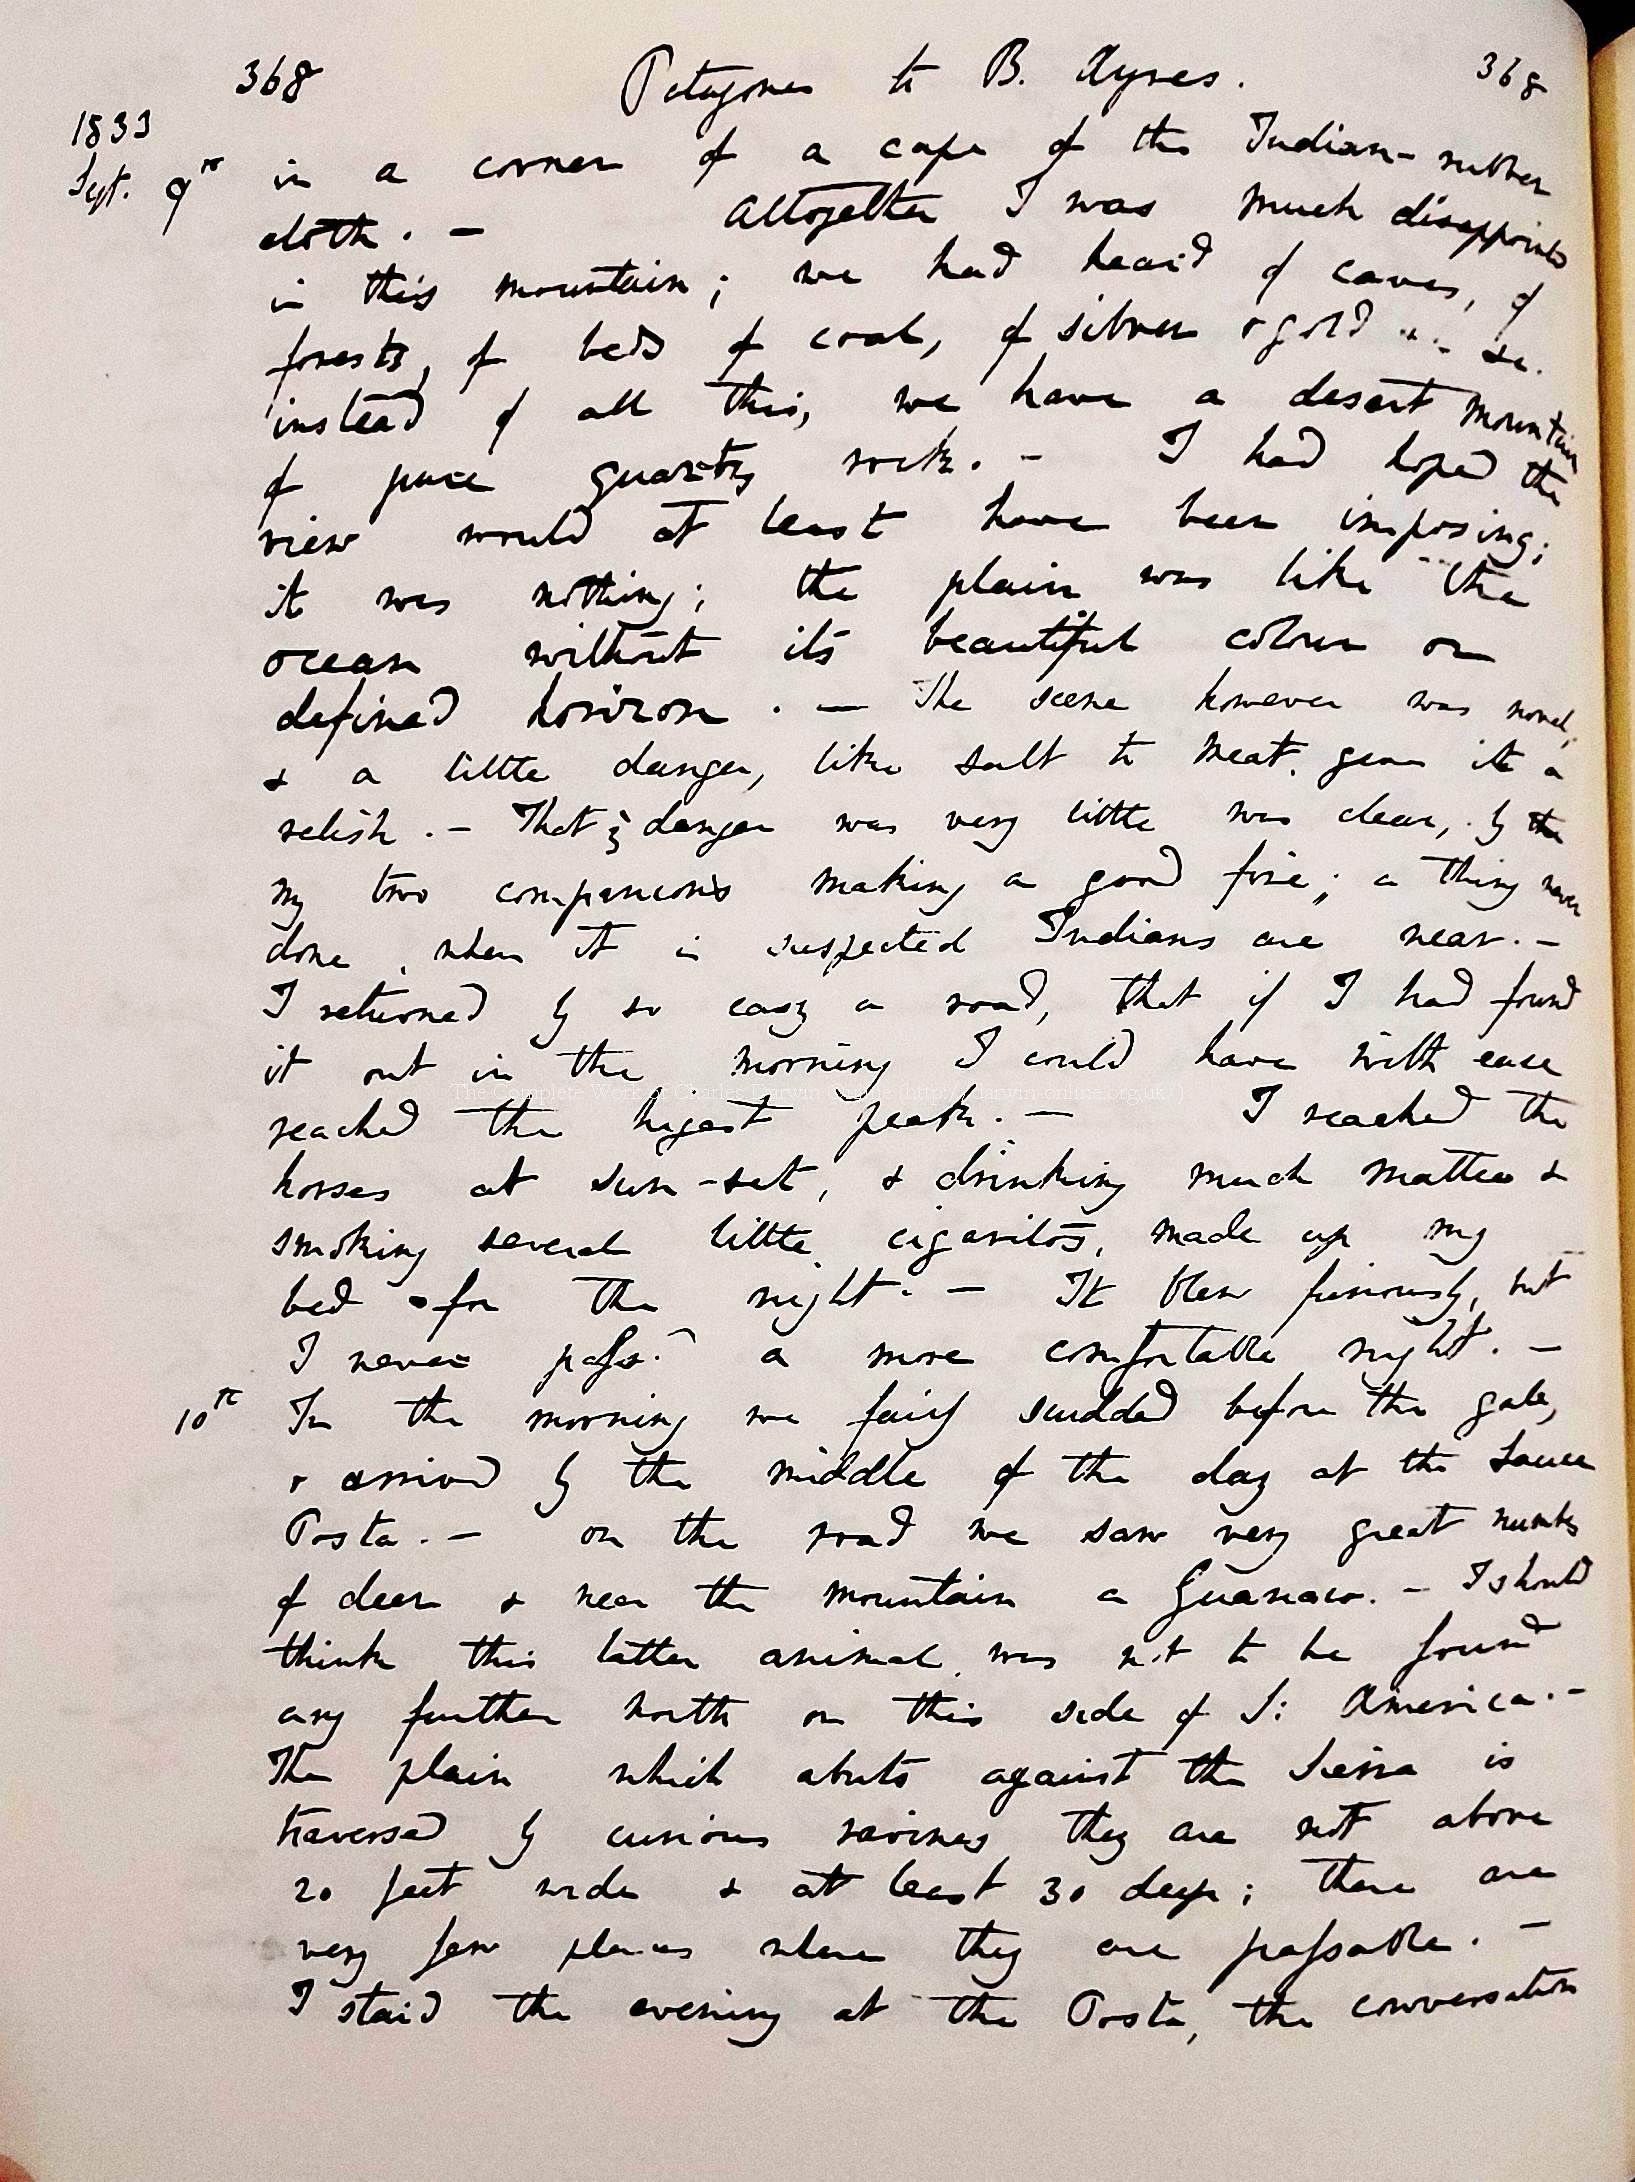 368 Patagones to B. Ayres. 368
1833
Sept. 9th in a corner of a cape of the Indian-rubber
cloth. —       Altogether I was much disappointed
in this mountain; we had heard of caves, of
forests, of beds of coal, of silver & gold &c &c.
instead of all this, we have a desert mountain
of pure quartz rock. — I had hoped the
view would at least have been imposing;
it was nothing; the plain was like the
ocean without its beautiful colour or
defined horizon. — The scene however was novel,
& a little danger, like salt to meat, gave it a
relish. — That danger was very little was clear, by
my two companions making a good fire; a thing never
done, when it is suspected Indians are near. —
I returned by so easy a road, that if I had found
it out in the morning I could have with ease
The Complete Work of Charles Darwin Online (http://darwin-online.org.uk)
reached the higest peak. —       I reached the
horses at sun-set, & drinking much mattee &
smoking several little cigaritos, made up my
bed for the night. — It blew furiously, but
I never pass.d a more comfortable night. —
10th In the morning we fairly scudded before the gale,
& arrived by the middle of the day at the Sauce
Posta. — on the road we saw very great numbers
of deer & near the mountain a Guanaco. — I should
think this latter animal was not to be found
any further north on this side of S: America. —
The plain which abuts against the Sierra is
traversed by curious ravines they are not above
20 feet wide & at least 30 deep; there are
very few places where they are passable. —
I staid the evening at the Posta, the conversation